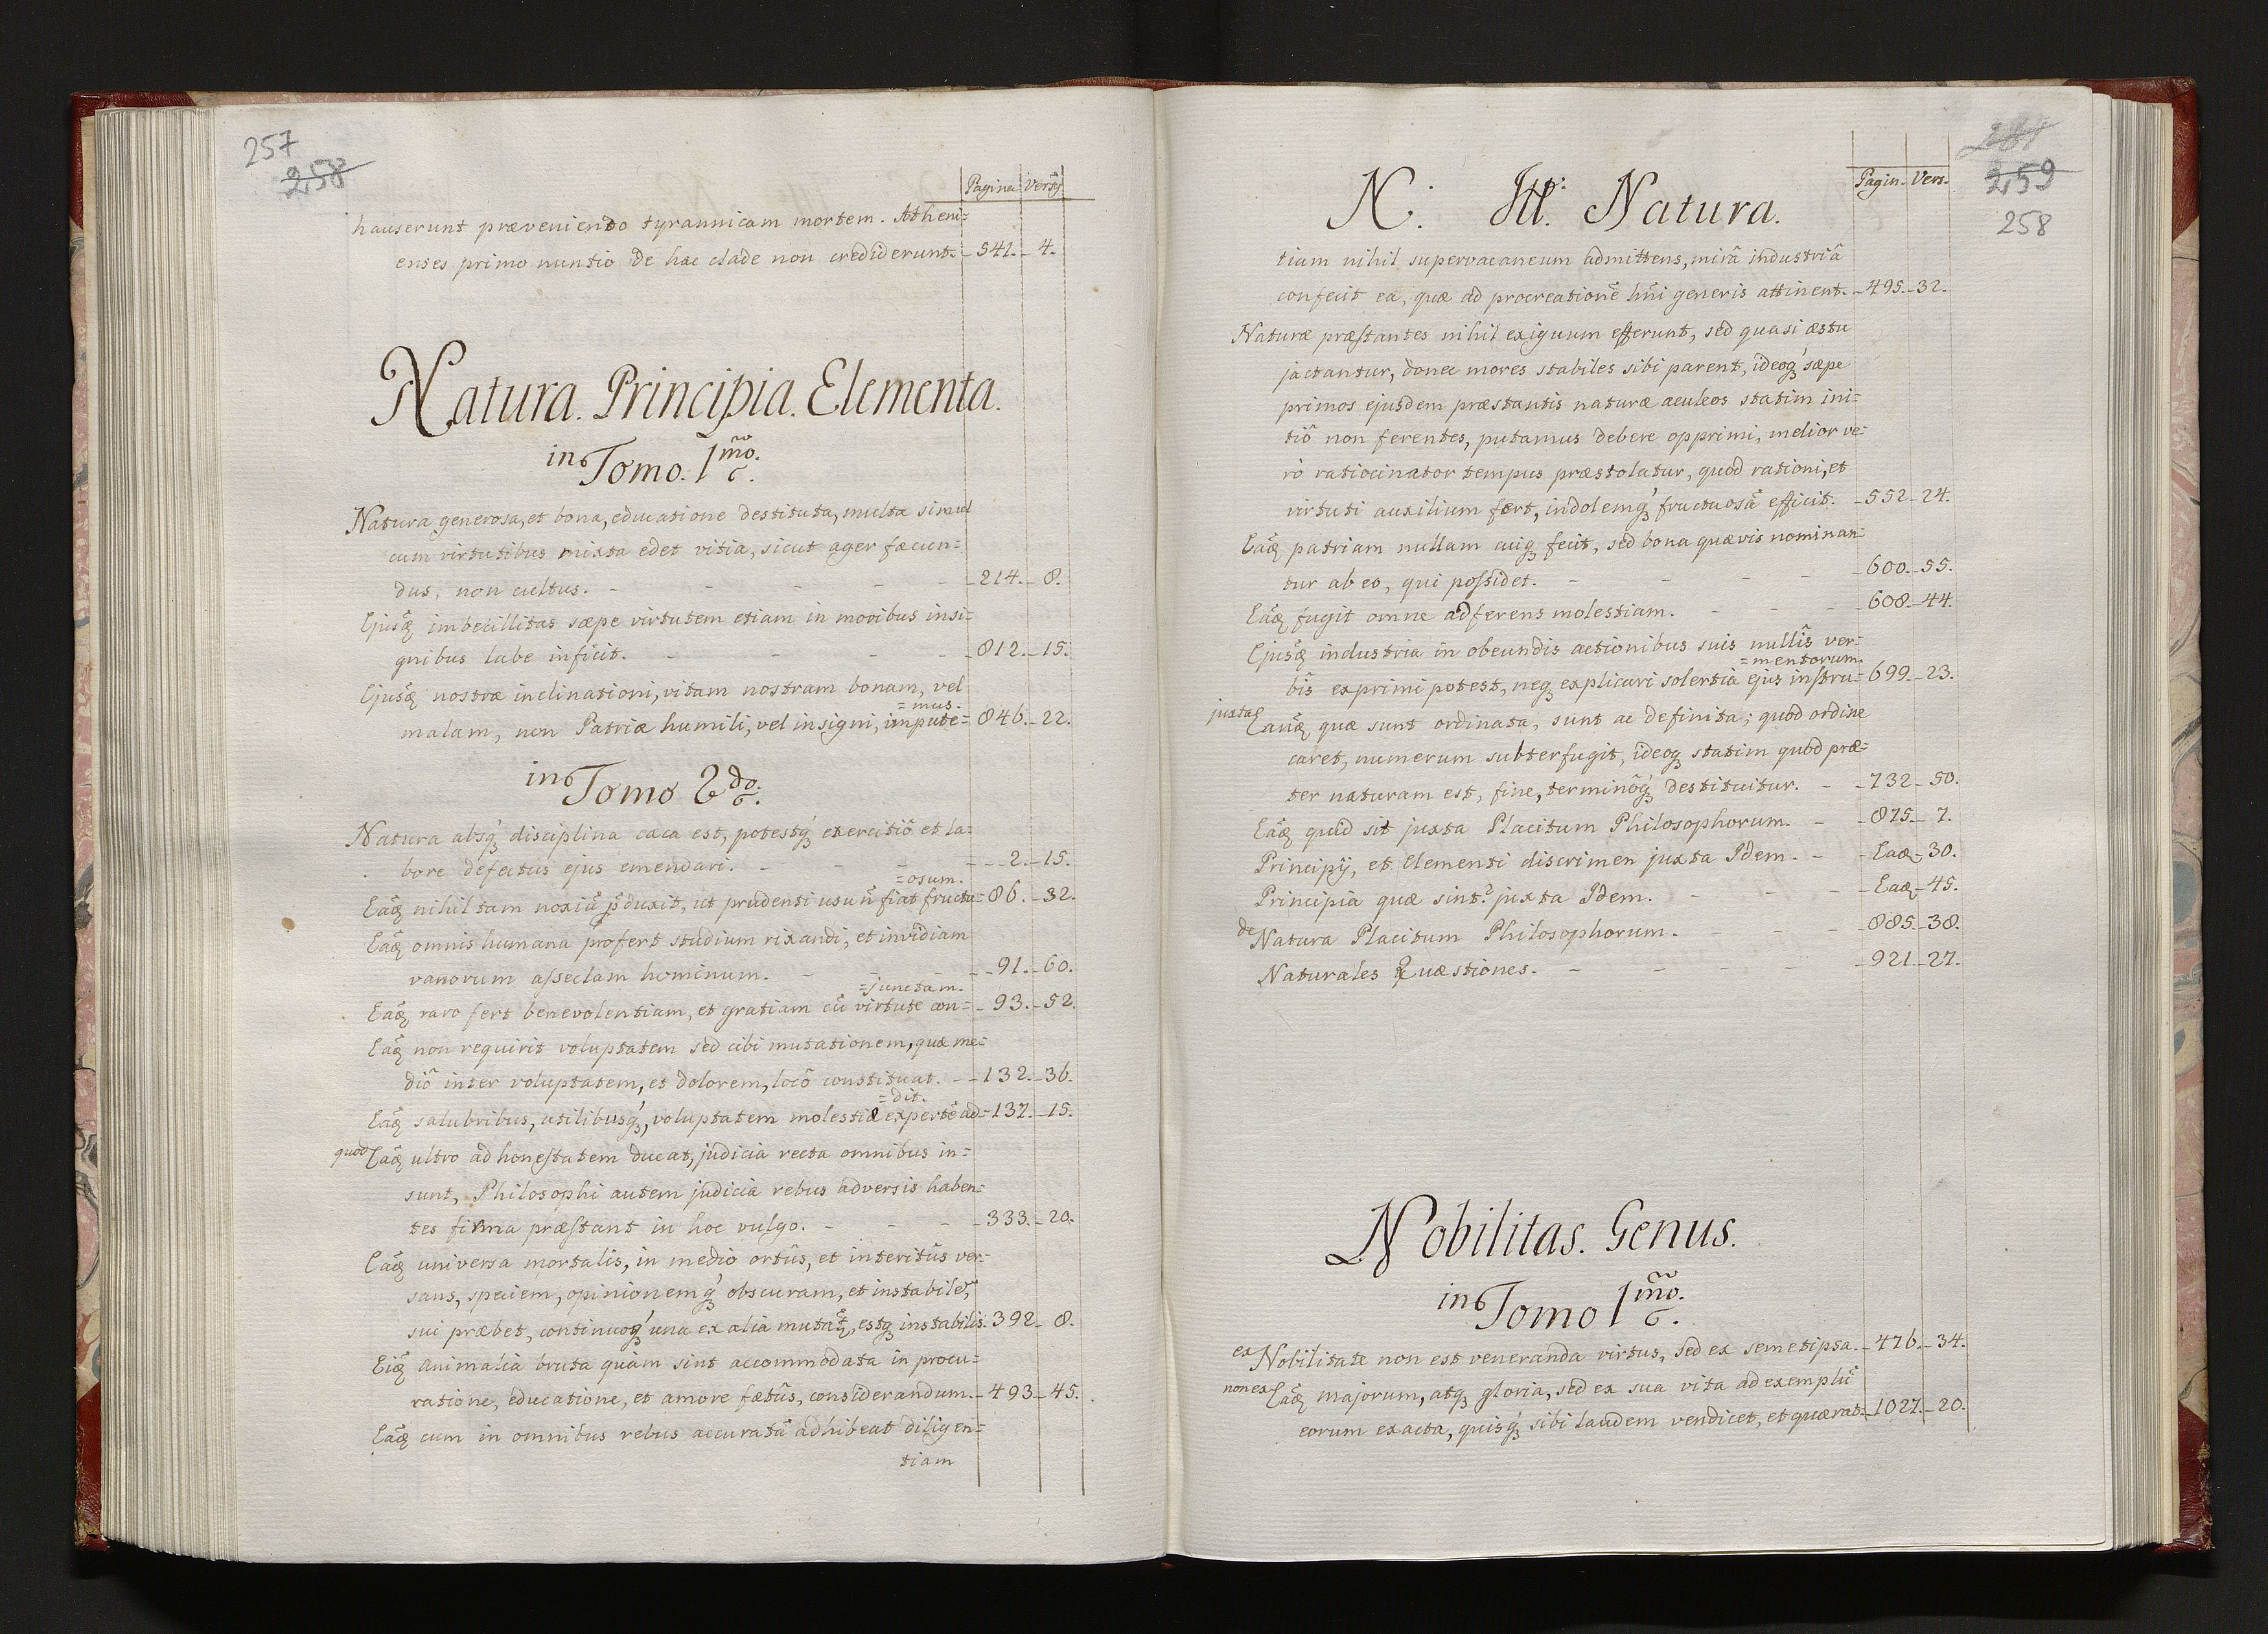 257
258
Pagina Versꝰ
hauserunt præveniendo tyrannicam mortem. Atheni=
enses primo nuntio de hac clade non crediderunt. - 541. - 4.
Natura. Principia. Elementa.
in Tomo. 1mo.
Natura generosa, et bona, educatione destituta, multa simul
cum virtutibus mixta edet vitia, sicut ager fæcun=
dus, non cultus. - - - - 214. - 8.
Ejusdꝫ imbecillitas sæpe virtutem etiam in moribus insi=
gnibus labe inficit. - - - - 812. - 15.
Ejusdꝫ nostræ inclinationi, vitam nostram bonam, vel
=mus.
malam, non Patriæ humili, vel insigni, impute= - 846. - 22.
in Tomo 2do.
Natura absqꝫ disciplina cæca est, potestqꝫ exercitiô et la=
bore defectus ejus emendari. - - - - 2. - 15.
=osum.
Eãdꝫ nihil tam noxiũ ꝓduxit, ut prudenti usu ñ fiat fructu= - 86. - 32.
Eãdꝫ omnis humana profert studium rixandi, et invidiam
vanorum asseclam hominum. - - - - 91. - 60.
=junctam.
Eãdꝫ raro fert benevolentiam, et gratiam cũ virtute con= - 93. - 52.
Eãdꝫ non requirit voluptatem sed cibi mutationem, quæ me=
diô inter voluptatem, et dolorem, locô constituat. - - 132. - 36.
=dit.
Eãdꝫ salubribus, utilibusqꝫ, voluptatem molestiæ expertẽ ad= - 137. - 15.
quod Eãdꝫ ultro ad honestatem ducat, judicia recta omnibus in=
sunt, Philosophi autem judicia rebus adversis haben=
tes firma præstant in hoc vulgo. - - - - 333. - 20.
Eãdꝫ universa mortalis, in medio ortûs, et interitûs ver=
sans, speciem, opinionemqꝫ obscuram, et instabilẽ,
sui præbet, continuoqꝫ una ex alia mutat̃, estqꝫ instabilis. 392. - 8.
Eidꝫ animalia bruta quàm sint accommodata in procu=
ratione, educatione, et amore fætûs, considerandum. - 493 - 45.
Eãdꝫ cum in omnibus rebus accuratã adhibeat diligen=
tiam
259
258
N: Ttl: Natura.
Pagin. Vers.
tiam nihil supervacaneum admittens, mirâ industriâ
confecit ea, quæ ad procreationẽ hũi generis attinent. - 495. - 32.
Naturæ præstantes nihil exiguum efferunt, sed quasi æstu
jactantur, donec mores stabiles sibi parent, ideoqꝫ sæpe
primos ejusdem præstantis naturæ aculeos statim ini=
tiô non ferentes, putamus debere opprimi, melior ve=
rò ratiocinator tempus præstolatur, quod rationi, et
virtuti auxilium fert, indolemqꝫ fructuosã efficit. - 552 - 24.
Eãdꝫ patriam nullam cuiqꝫ fecit, sed bona quævis nominan=
tur ab eo, qui possidet. - - - - 600. - 55.
Eãdꝫ fugit omne adferens molestiam. - - - 608. - 44.
Ejusdꝫ industria in obeundis actionibus suis nullis ver=
=mentorum.
bis exprimi potest, neqꝫ explicari solertia ejus instru= - 699. - 23.
juxta Eandꝫ quæ sunt ordinata, sunt ac definita; quod ordine
caret, numerum subterfugit, ideoqꝫ statim quod præ=
ter naturam est, fine, terminôqꝫ destituitur. - - 732 - 50.
Eãdꝫ quid sit juxta Placitum Philosophorum. - - 875. - 7.
Principij, et Elementi discrimen juxta Idem. - - Eadꝫ - 30.
Principia quæ sint? juxta Idem. - - - Eadꝫ - 45.
de Natura Placitum Philosophorum. - - - 885. - 38.
Naturales Quæstiones. - - - - 921. - 27.
Nobilitas. Genus.
in Tomo 1mo.
ex Nobilitate non est veneranda virtus, sed ex semetipsa. - 476. - 34.
non ex Eãdꝫ majorum, atqꝫ gloria, sed ex sua vita ad exemplũ
eorum exacta, quisqꝫ sibi laudem vendicet, et quærat. - 1027. - 20.